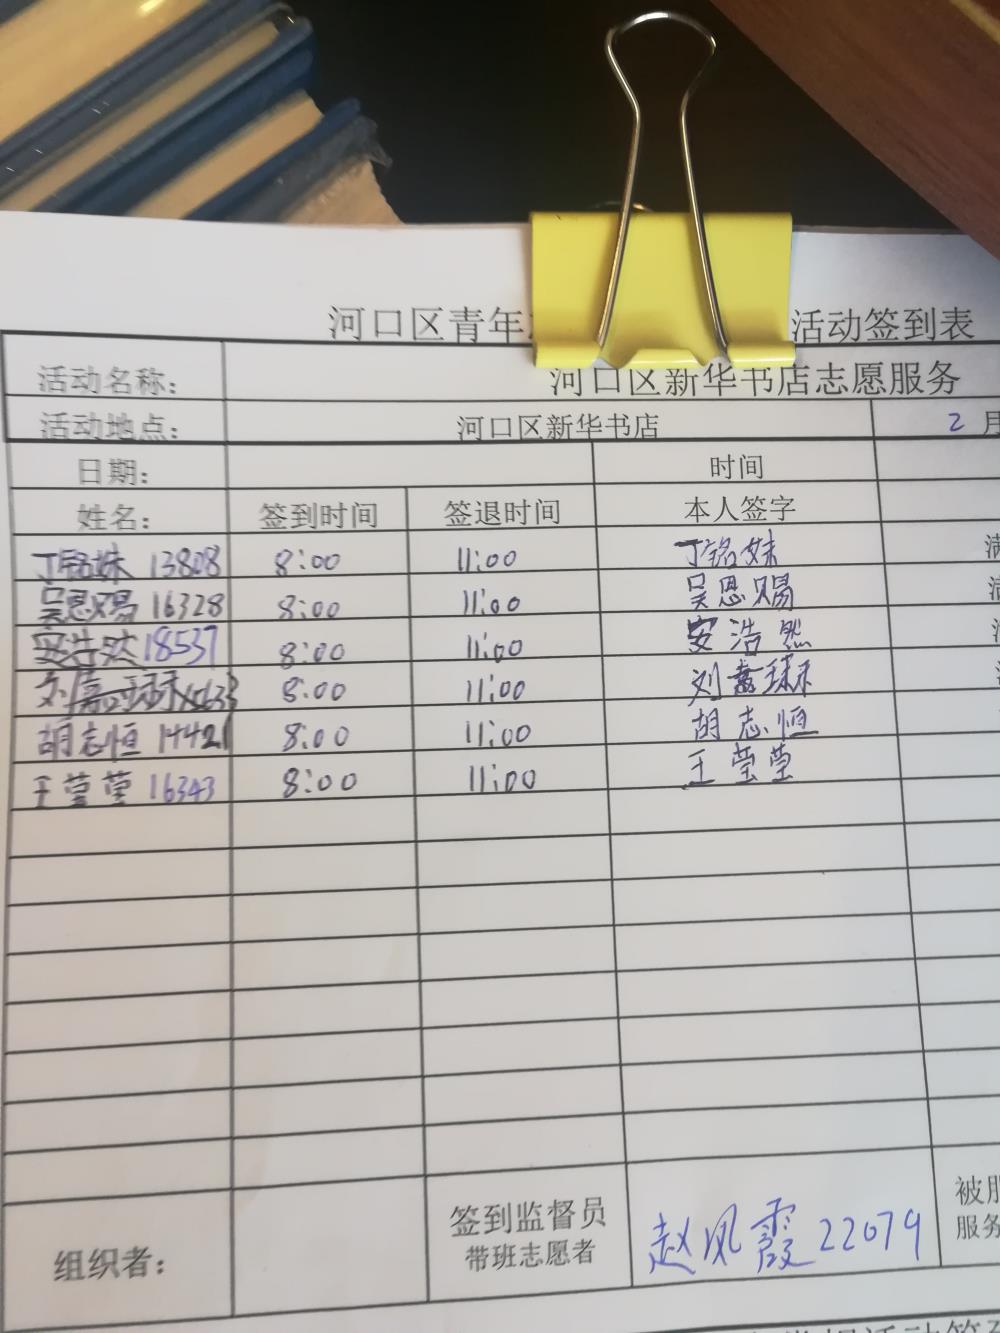 河口区青年 活动签到表
活动名称： 河口区新华书店志愿服务
活动地点： 河口区新华书店 2月
日期： 时间
姓名： 签到时间 签退时间 本人签字
丁铭妹 13808 8:00 11:00 丁铭妹
吴恩赐 16328 8:00 11:00 吴恩赐
安浩然 18537 8:00 11:00 安浩然
8:00 11:00
胡志恒 14421 8:00 11:00 胡志恒
王莹莹 16343 8:00 11:00 王莹莹
组织者： 签到监督员 赵凤霞 22079 被服
带班志愿者 服务